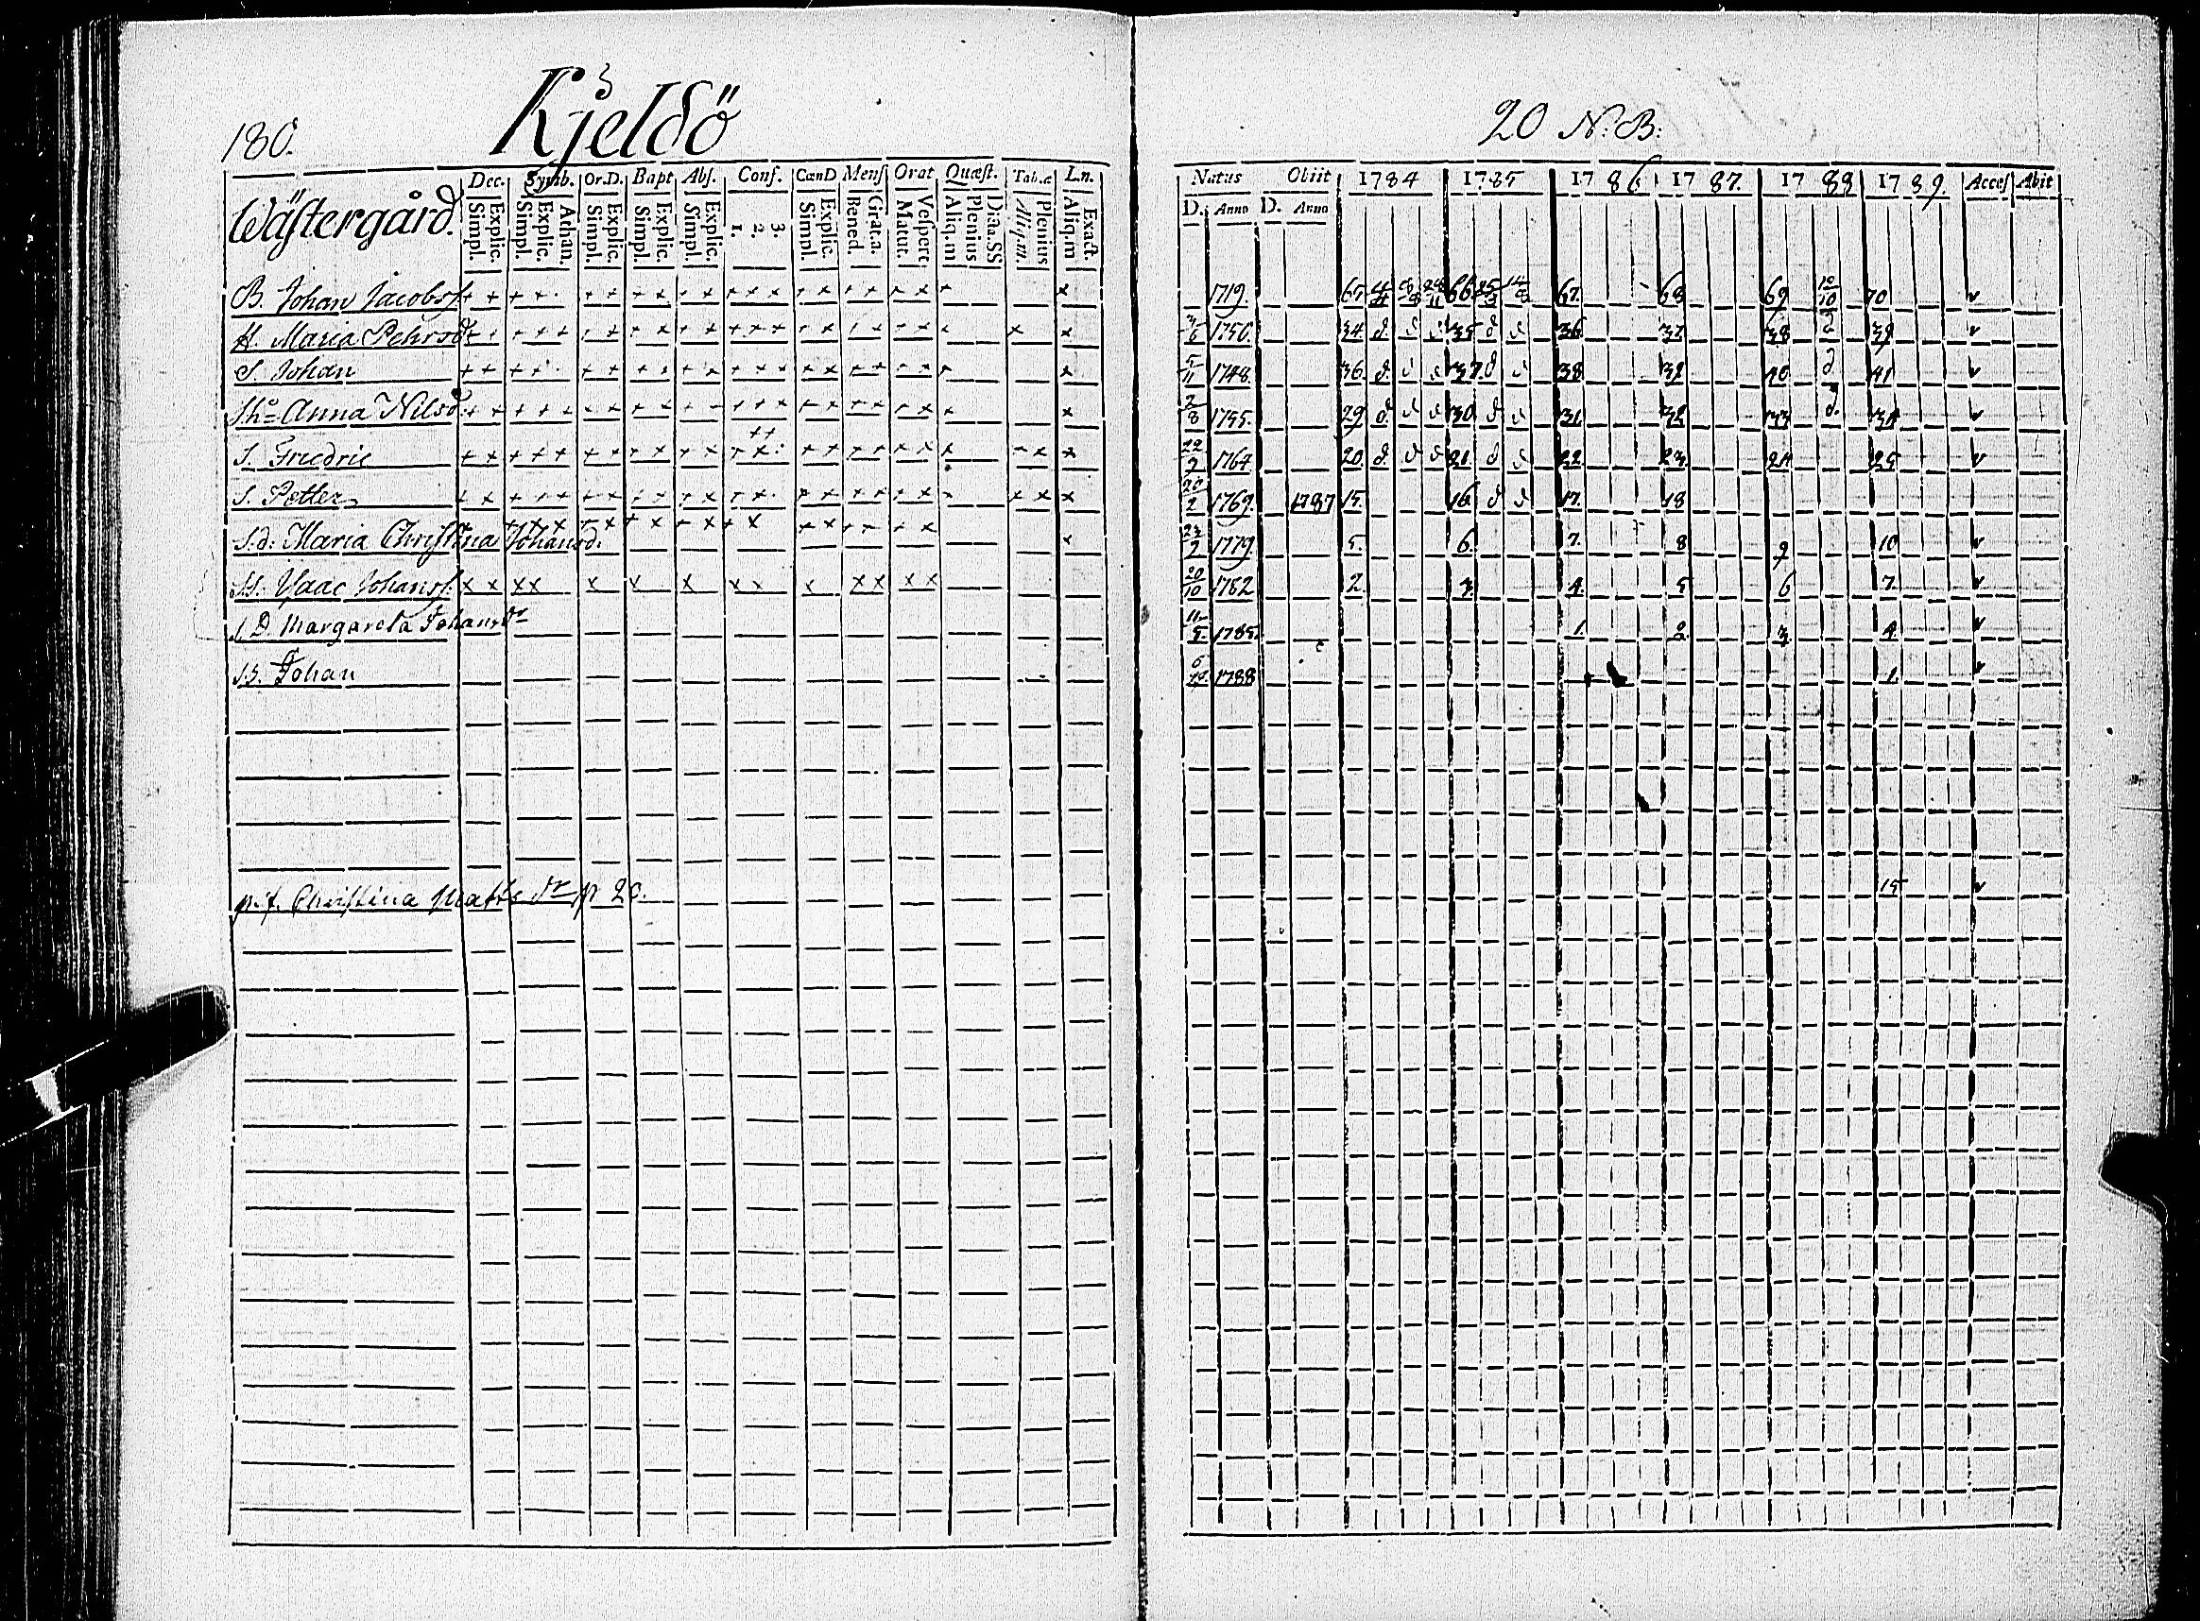 180.
Kjeldö
20 N:B:
Dec. Symb. Or.D. Bapt Abs. Conf. CœnD Mens Orat Quæst. Tab.æ L.n.
Wästergård.
Simpl. Explic. Simpl. Explic. Athan. Simpl. Explic. Simpl. Explic. Simpl. Explic. 1. 2. 3. Simpl. Explic. Bened. Grat.a. Matut. Vespere Aliq.m Plenius Dida.SS Aliq.m. Plenius Aliq.m Exact.
Natus Obiit 1784 1785 1786 1787. 1788 1789. Acces Abit
D. Anno D. Anno
B. Johan Jacobss. 1719. 65 66 67. 68 69 10/10 70
H. Maria Pehrsd 1750. 34. d. d d 35 d d 36 37 38 d 39
S. Johan 5/11 1748. 36. d. d d 37 d d 38 39 40 d 41
Sh: Anna Nilsd. 2/8 1755. 29 d. d d 30 d d 31 32 33 d. 34
S. Friedric 1764 20. d. d d 21. d d 22 23 24 25
S. Petter 20/2 1769. 1787 15. 16 d d 17. 18
S.d: Maria Christina Johansd: 1779. 5. 6. 7. 8 9 10
S.S. Ysaac Johanss. 20/10 1782 2. 3. 4. 5 6 7.
S.D. Margareta Johansdr 1785. 1. 2. 3. 4.
S.S. Johan 1788 1.
p:f. Christina Matts dr p 20. 15